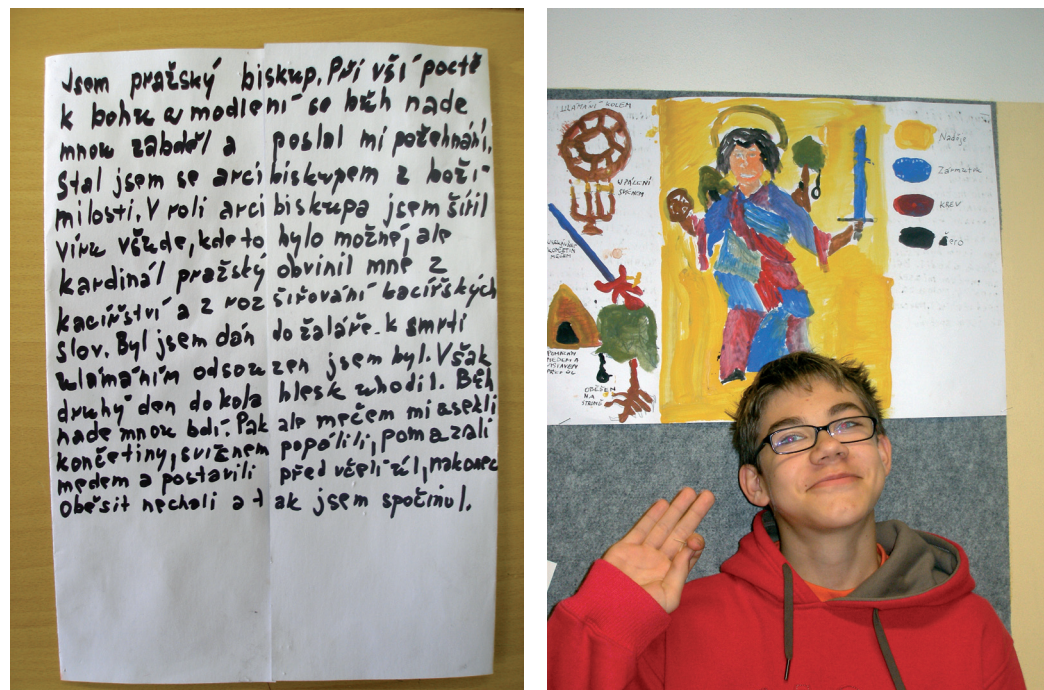 Jsem pražský biskup. Při vší poctě
k bohu a modlení se bůh nade
mnou zabděl a poslal mi požehnání.
Stal jsem se arcibiskupem z boží
milosti. V roli arcibiskupa jsem šířil
víru všude, kde to bylo možné, ale
kardinál pražský obvinil mně z
kacířství a z rozšiřování kacířských
slov. Byl jsem dán do žaláře. k smrti
ulámáním odsouzen jsem byl. Však
druhý den do kola blesk uhodil. Bůh
nade mnou bdí. Pak ale mečem mi usekli
končetiny, svícnem popálili, pomazali
medem a postavili před včelí úl, nakonec
Oběsit nechali a tak jsem spočinul.
ULÁMÁNÍ KOLEM
UPÁLENÍ
SVÍCNEM
KONČETIN
MEČEM
POMAZÁN
MEDEM A
VYSTAVEN
PROTI ÚL
OBĚŠEN
NA
STROMĚ
Naděje
Zármutek
KREV